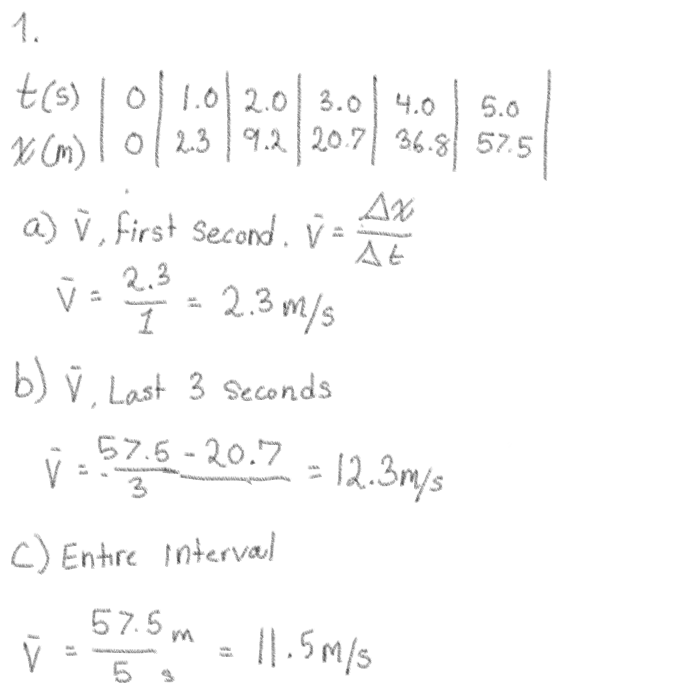 1.
t(s) | 0 | 1.0 | 2.0 | 3.0 | 4.0 | 5.0 |
x(m) | 0 | 2.3 | 9.2 | 20.7 | 36.8 | 57.5 |
a) v̄, first second. v̄ = Δx/Δt
v̄ = 2.3/1 = 2.3 m/s
b) v̄, Last 3 seconds
v̄ = 57.5 - 20.7/3 = 12.3 m/s
c) Entire interval
v̄ = 57.5 m/5 s = 11.5 m/s